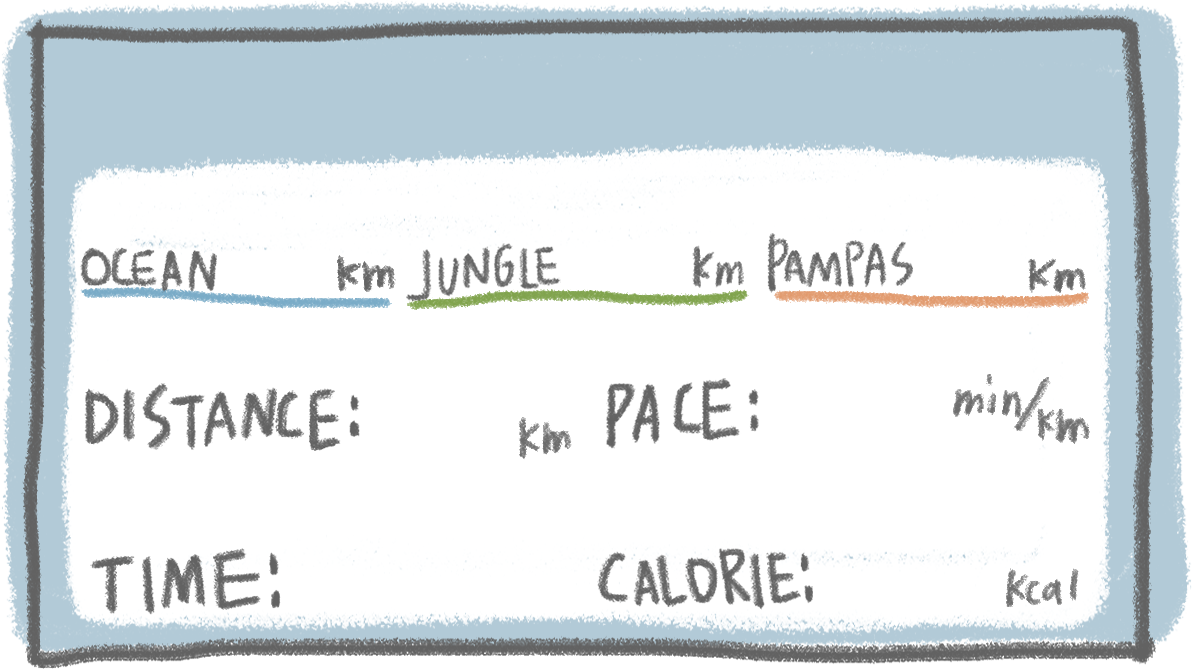 OCEAN km JUNGLE km PAMPAS km
DISTANCE: km PACE: min/km
TIME: CALORIE: kcal